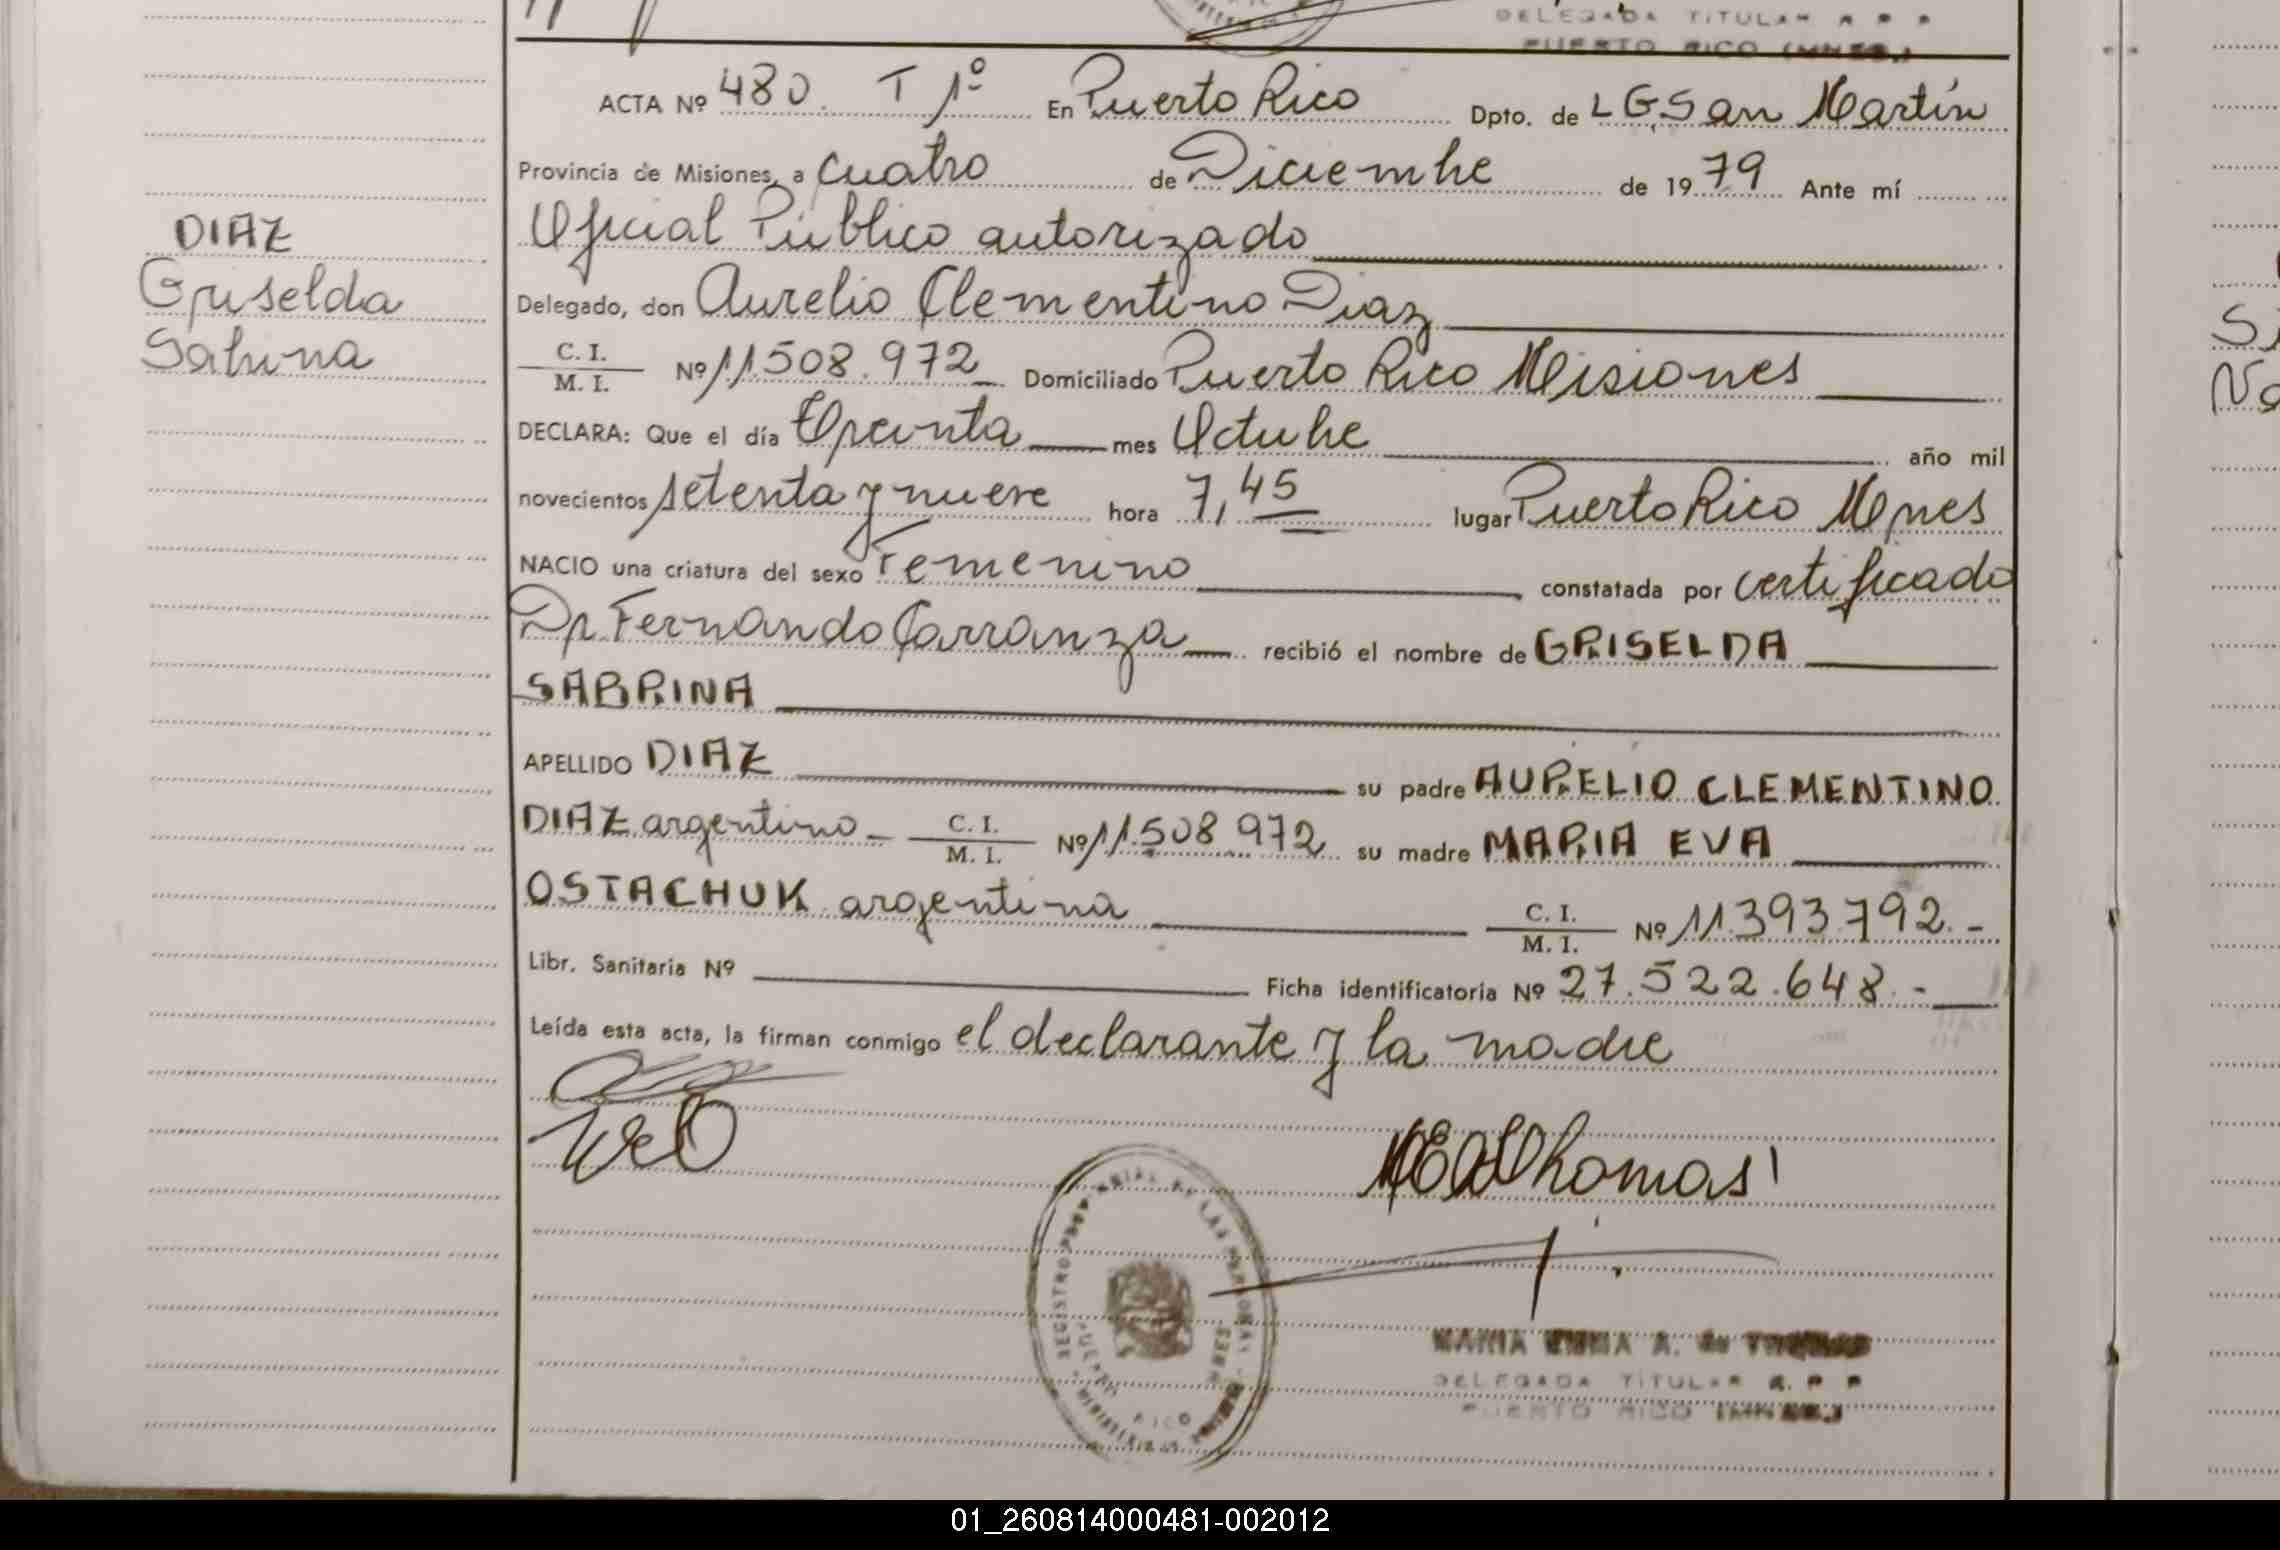 DELEGADA TITULAR R P P
PUERTO RICO (MNES.)
ACTA Nº 480. T 1º En Puerto Rico Dpto. de L G San Martín
Provincia de Misiones, a cuatro de Diciembre de 1979 Ante mí
Oficial Público autorizado
Delegado, don Aurelio Clementino Diaz
C. I.
M. I. Nº 11508.972 Domiciliado Puerto Rico Misiones
DECLARA: Que el día Treinta mes Octubre año mil
novecientos setenta y nueve hora 7,45 lugar Puerto Rico Mnes
NACIO una criatura del sexo Femenino constatada por certificado
Dr Fernando Carranza recibió el nombre de GRISELDA
SABRINA
APELLIDO DIAZ su padre AURELIO CLEMENTINO
DIAZ argentino C. I.
M. I. Nº 11.508 972 su madre MARIA EVA
OSTACHUK argentina C. I.
M. I. Nº 11393.792.-
Libr. Sanitaria Nº Ficha identificatoria Nº 27.522.648.-
Leída esta acta, la firman conmigo el declarante y la madre
DIAZ
Griselda
Sabrina
MARIA EMMA A. de THOMAS
DELEGADA TITULAR R. P P
PUERTO RICO (MNES.)
01_260814000481-002012